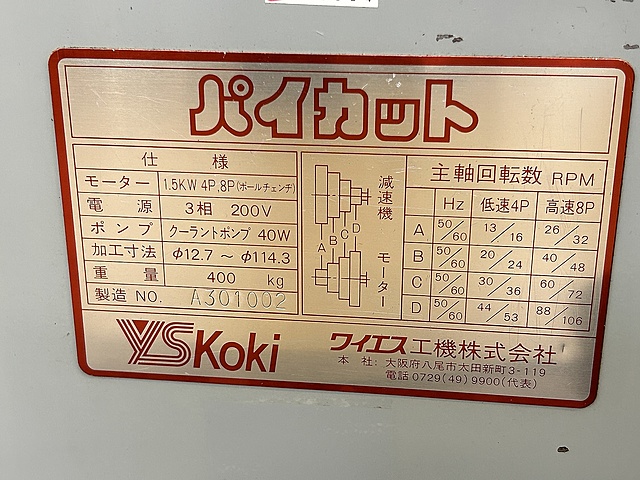 パイカット
仕 様
モーター 1.5KW 4P.8P(ポールチェンヂ)
電 源 3相 200V
ポンプ クーラントポンプ 40W
加工寸法 φ12.7 ～ φ114.3
重 量 400 kg
製造 NO. A301002
減速機
A B C D
モーター
主軸回転数 RPM
Hz 低速4P 高速8P
A 50/60 13/16 26/32
B 50/60 20/24 40/48
C 50/60 30/36 60/72
D 50/60 44/53 88/106
YS Koki
ワイエス工機株式会社
本 社: 大阪府八尾市太田新町3-119
電話 0729(49)9900(代表)